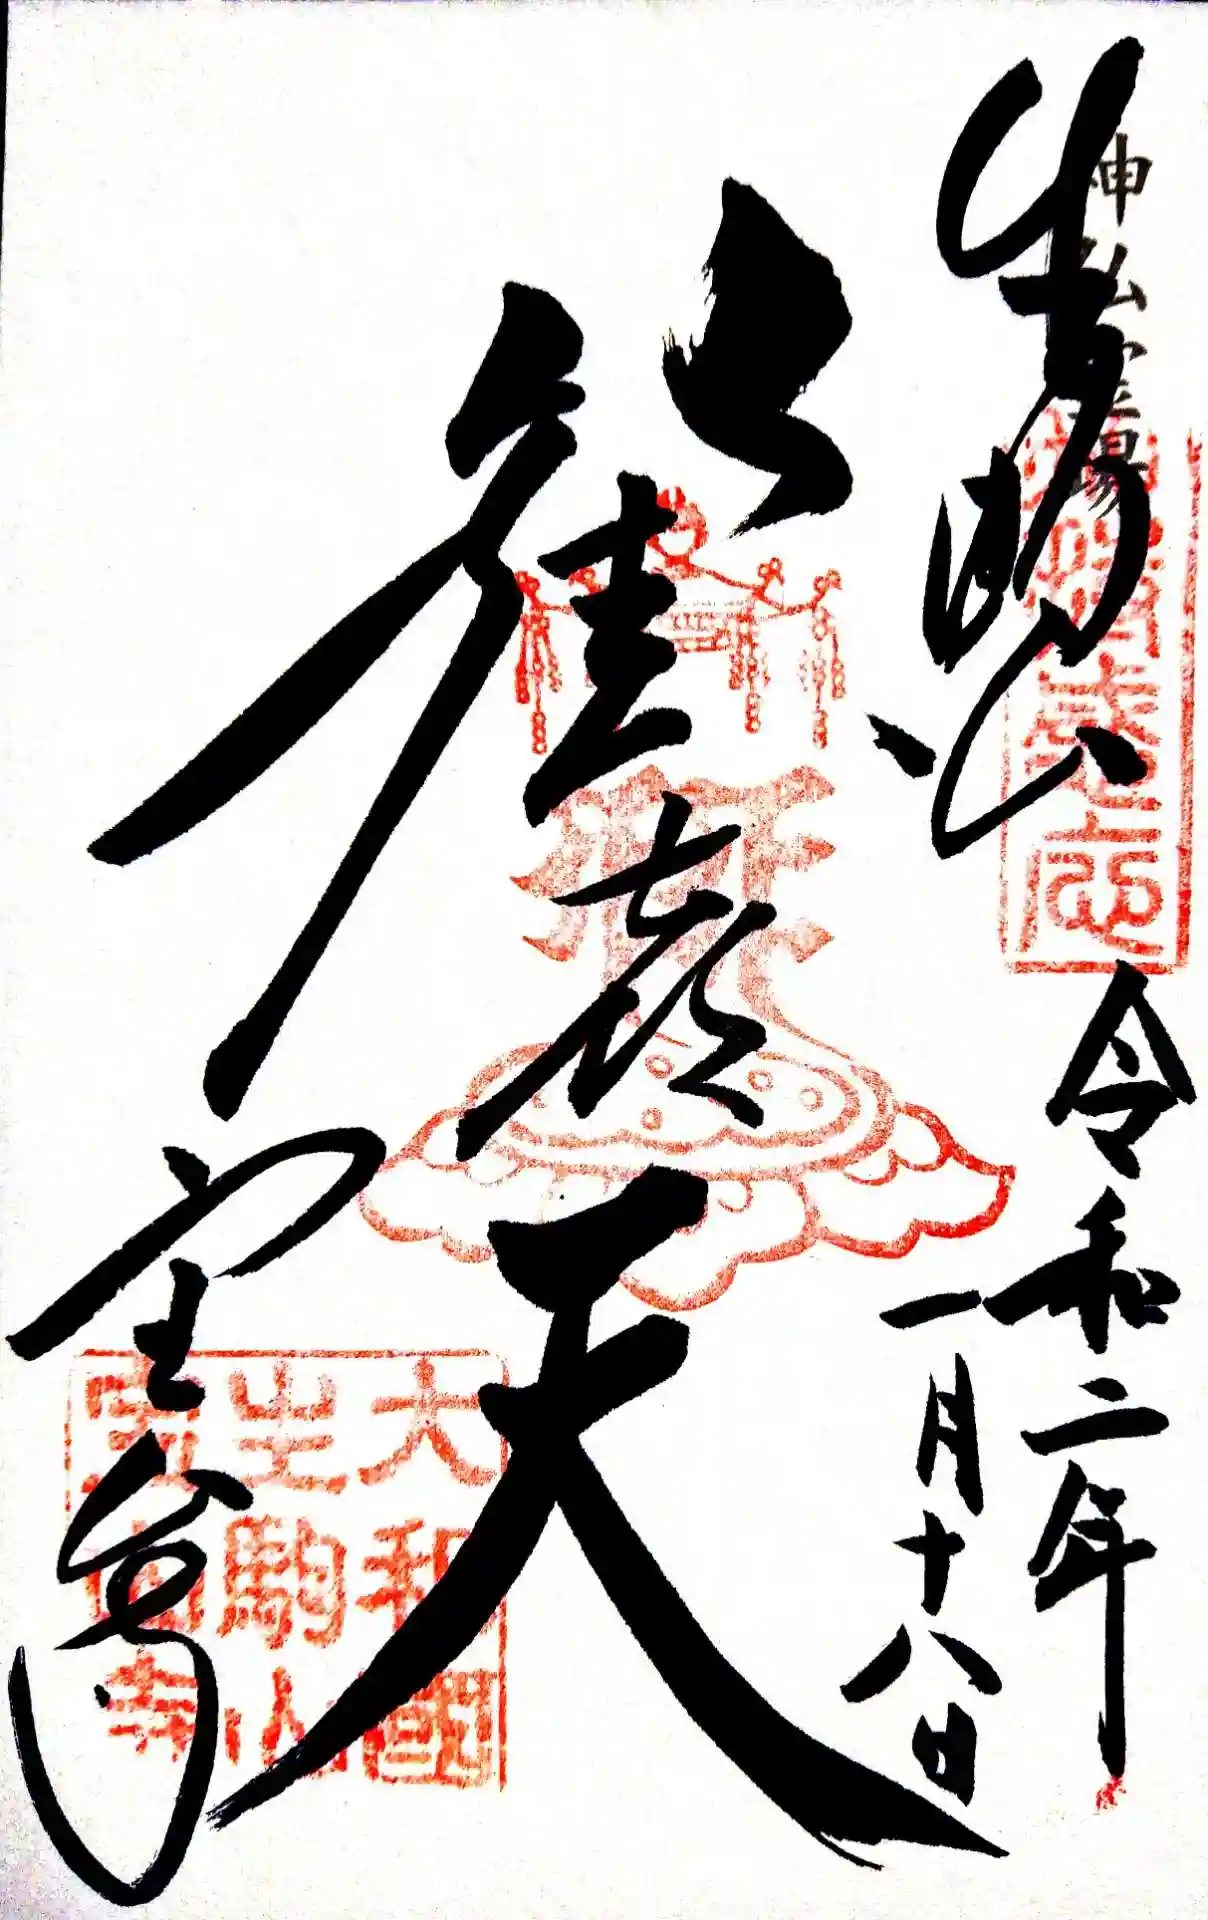 生駒山
神仏霊場
令和二年
一月十八日
歓喜天
宝山寺
大和國
生駒山
宝山寺